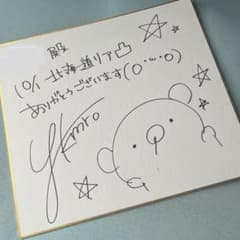 殿
10/1 北海道リア凸
ありがとうございます(○'ω'○)